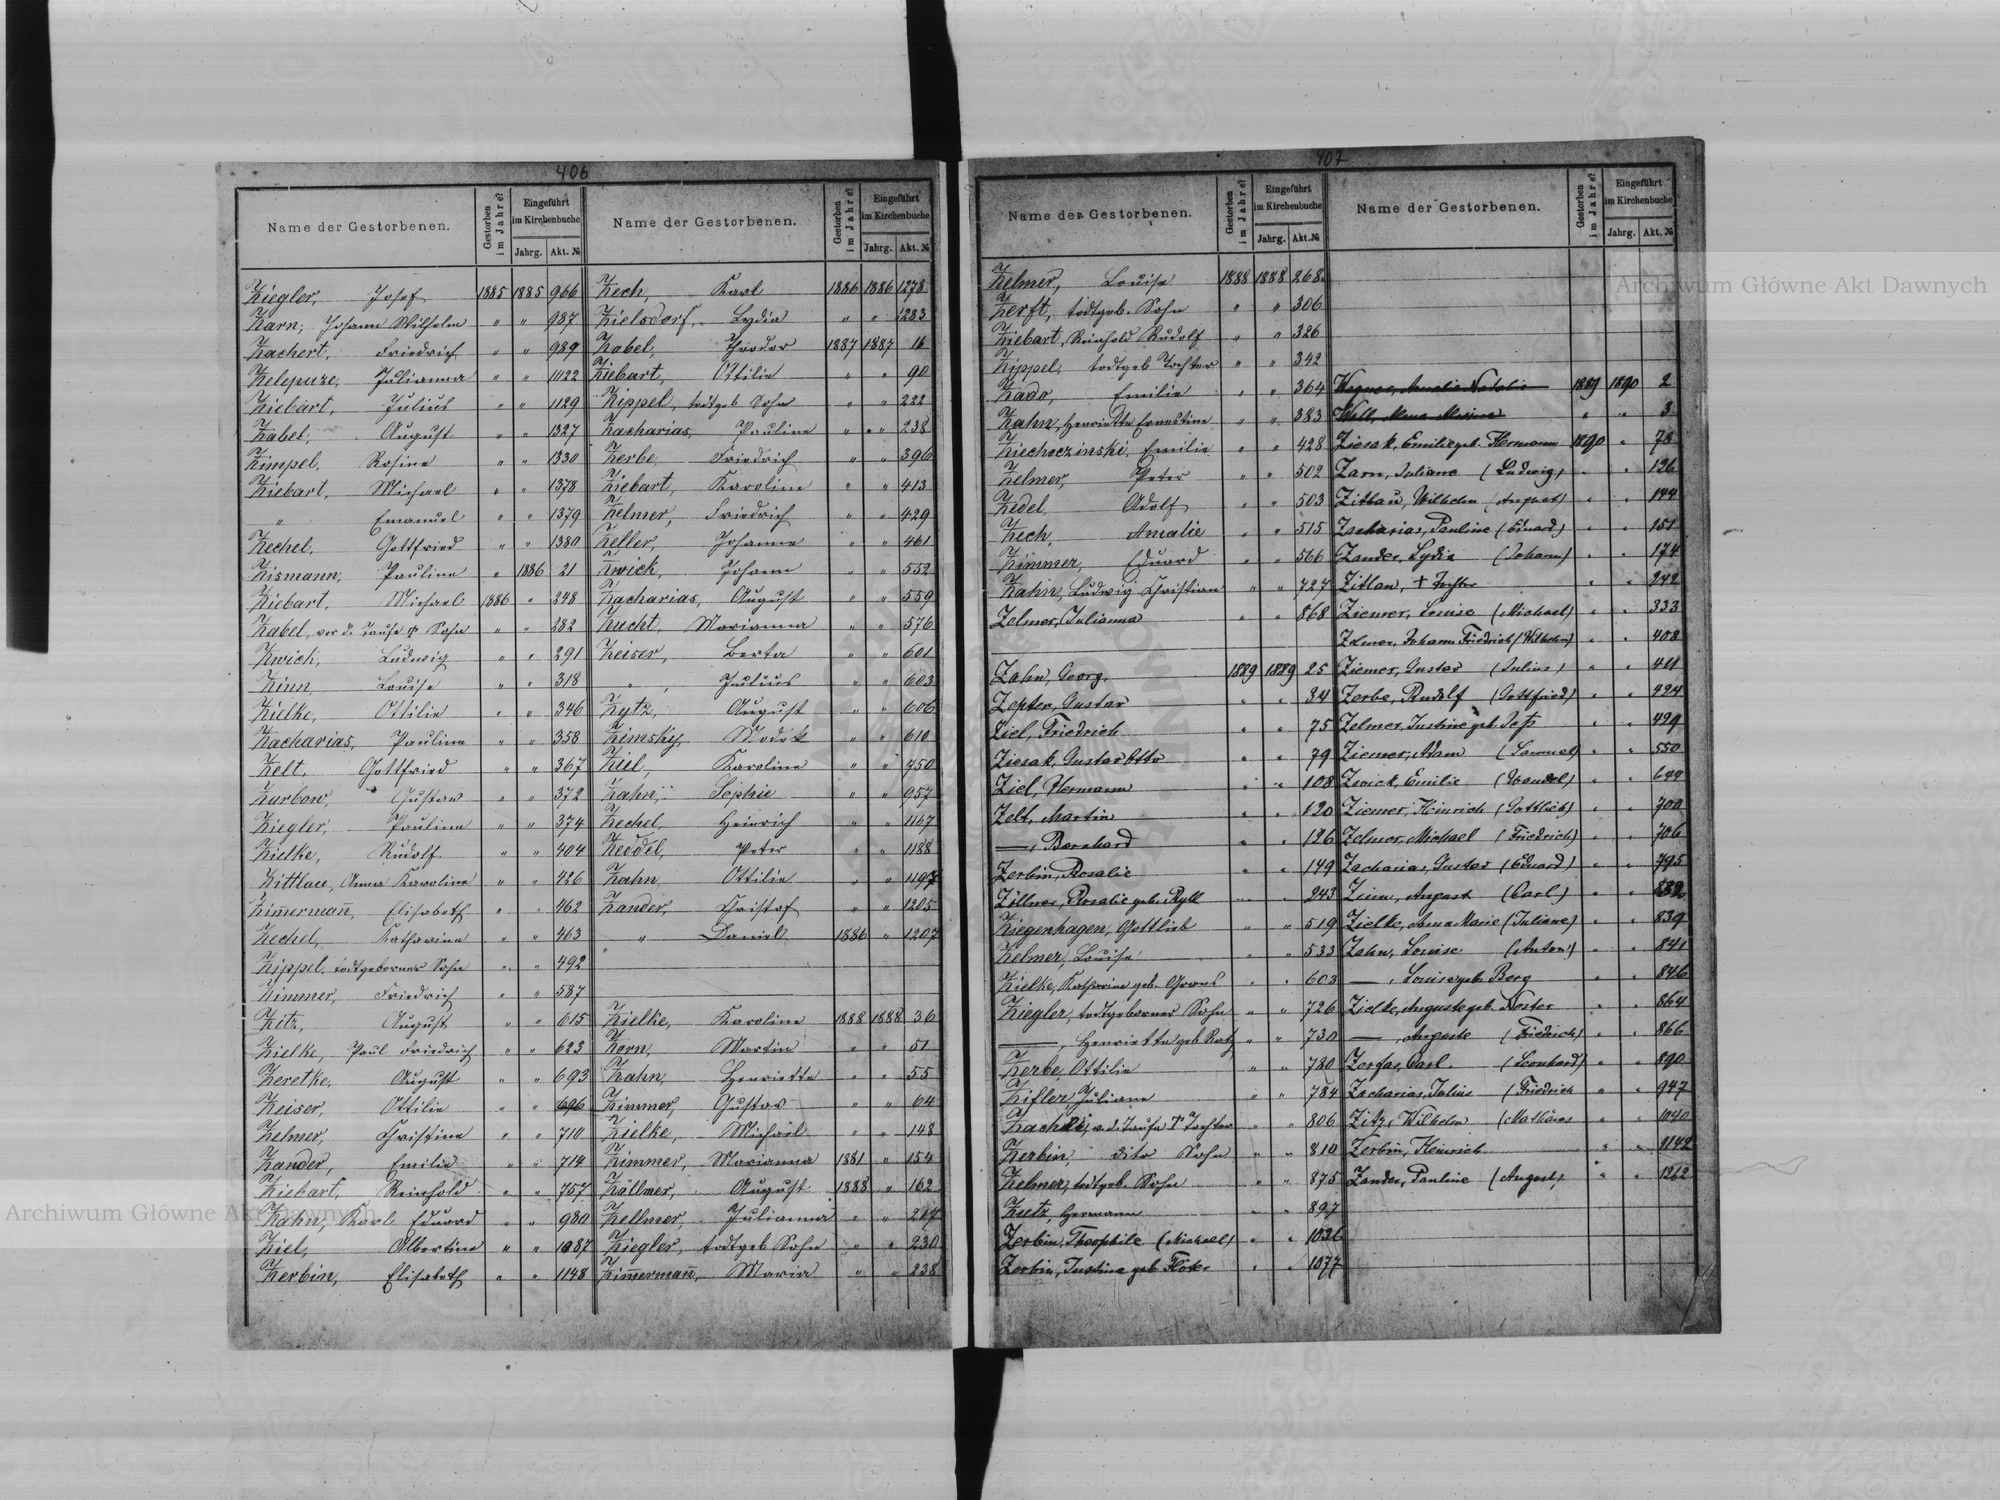 406
Name der Gestorbenen. Gestorben im Jahre? Eingeführt im Kirchenbuche Jahrg. Akt. №
Ziegler, Josef 1885 1885 966
Zarn, Johann Wilhelm " " 987
Zachert, Friedrich " " 989
Zelepuze, Julianna " " 1022
Ziebart, Julius " " 1129
Zabel, August " " 1327
Zimpel, Rosine " " 1330
Ziebart, Michael " " 1378
" Emanuel " " 1379
Zechel, Gottfried " " 1380
Zismann, Pauline " 1886 21
Ziebart, Michael 1886 " 248
Zabel, vor d. Taufe † Sohn " " 282
Zwick, Ludwig " " 291
Zinn, Louise " " 318
Zielke, Ottilie " " 346
Zacharias, Pauline " " 358
Zelt, Gottfried " " 367
Zurbow, Gustav " " 372
Ziegler, Pauline " " 374
Zielke, Rudolf " " 404
Zittlau, Anna Karoline " " 426
Zim̅erman̅, Elisabeth " " 462
Zechel, Katharina " " 463
Zippel, todtgeborner Sohn " " 492
Zimmer, Friedrich " " 587
Zitz, August " " 615
Zielke, Paul Friedrich " " 623
Zeretke, August " " 693
Zeiser, Ottilie " " 696
Zelmer, Christine " " 710
Zander, Emilie " " 714
Ziebart, Reinhold " " 757
Zahn, Karl Eduard " " 980
Ziel, Albertine " " 1087
Zerbin, Elisabeth " " 1148
Name der Gestorbenen. Gestorben im Jahre? Eingeführt im Kirchenbuche Jahrg. Akt. №
Zech, Karl 1886 1886 1278
Zielsdorf, Lydia " " 1283
Zabel, Theodor 1887 1887 16
Ziebart, Ottilie " " 90
Zippel, todtgeb Sohn " " 222
Zacharias, Pauline " " 238
Zerbe, Friedrich " " 396
Ziebart, Karoline " " 413
Zelmer, Friedrich " " 429
Zeller, Johanne " " 461
Zwick, Johann " " 552
Zacharias, August " " 559
Zucht, Marianna " " 576
Zeiser, Berta " " 601
" , Julius " " 603
Zytz, August " " 606
Zimsky, " " 610
Ziel, Karoline " " 750
Zahn, Sophie " " 957
Zechel, Heinrich " " 1167
Zeddel, Peter " " 1188
Zahn, Ottilie " " 1197
Zander, Christof " " 1205
" Daniel 1886 " 1207
Zielke, Karoline 1888 1888 36
Zorn, Martin " " 51
Zahn, Henriette " " 55
Zimmer, Gustav " " 64
Zielke, Michael " " 148
Zimmer, Marianna 1881 " 154
Zöllmer, August 1888 " 162
Zellmer, Julianna " " 217
Ziegler, todtgeb Sohn " " 230
Zim̅erman̅, Maria " " 238
407
Name der Gestorbenen. Gestorben im Jahre? Eingeführt im Kirchenbuche Jahrg. Akt. №
Zelmer, Louise 1888 1888 268
Zerft, todtgeb. Sohn " " 306
Ziebart, Reinhold Rudolf " " 326
Zippel, todtgeb Tochter " " 342
Zado, Emilie " " 364
Zahn, Henriette Ernestine " " 383
Ziechoczinski, Emilie " " 428
Zelmer, Peter " " 502
Zedel, Adolf " " 503
Zech, Amalie " " 515
Zimmer, Eduard " " 566
Zahn, Ludwig Christian " " 727
Zelmer, Julianna " " 868
Zahn, Georg. 1889 1889 25
Zepter, Gustav " " 34
Ziel, Friedrich " " 75
Ziesak, Gustav Otto " " 79
Ziel, Hermann " " 108
Zelt, Martin " " 120
—, Bernhard " " 126
Zerbin, Rosalie " " 149
Zöllner, Rosalie geb. Ryll " " 243
Ziegenhagen, Gottlieb " " 519
Zelmer, Louise " " 533
Zielke, Katharine geb. " " 603
Ziegler, todtgeborner Sohn " " 726
—, Henriette geb Ratz " " 730
Zerbe, Ottilie " " 780
Zifler, Juliane " " 784
v. d. Taufe † Tochter " " 806
Zerbin, dito Sohn " " 810
Zelmer, todtgeb. Sohn " " 875
Zutz, Hermann " " 897
Zerbin, Theophile (Michael) " " 1036
Zerbin, Justine geb " " 1077
Name der Gestorbenen. Gestorben im Jahre? Eingeführt im Kirchenbuche Jahrg. Akt. №
Wegner, Amalie Natalie 1889 1890 2
Will, " " 3
Ziesak, Emilie geb. Hermann 1890 " 78
Zarn, Juliane (Ludwig) " " 136
Zittau, Wilhelm (August) " " 144
Zacharias, Pauline (Eduard) " " 151
Zander, Lydia (Johann) " " 174
Zitlau, † Tochter " " 242
Ziemer, Louise (Michael) " " 333
Zelmer, Johann Friedrich (Wilhelm) " " 408
Ziemer, Gustav (Julius) " " 411
Zerbe, Rudolf (Gottfried) " " 424
Zelmer, Justine geb. " " 429
Ziemer, Adam (Samuel) " " 550
Zwick, Emilie " " 644
Ziemer, Heinrich (Gottlieb) " " 700
Zelmer, Michael (Friedrich) " " 706
Zacharias, Gustav (Eduard) " " 795
August (Carl) " " 882
Zielke, Anna Marie (Juliane) " " 839
Zahn, Louise (Anton) " " 841
—, Louise geb. Berg " " 846
Zielke, Auguste geb. Koster " " 864
—, Auguste (Friedrich) " " 866
Zerfas, Carl. (Leonhard) " " 890
Zacharias, Julius (Friedrich " " 947
Zitz, Wilhelm (Mathäus " " 1040
Zerbin, Heinrich " " 1142
Zander, Pauline (August) " " 1262
Archiwum Główne Akt Dawnych
Archiwum Główne Akt Dawnych